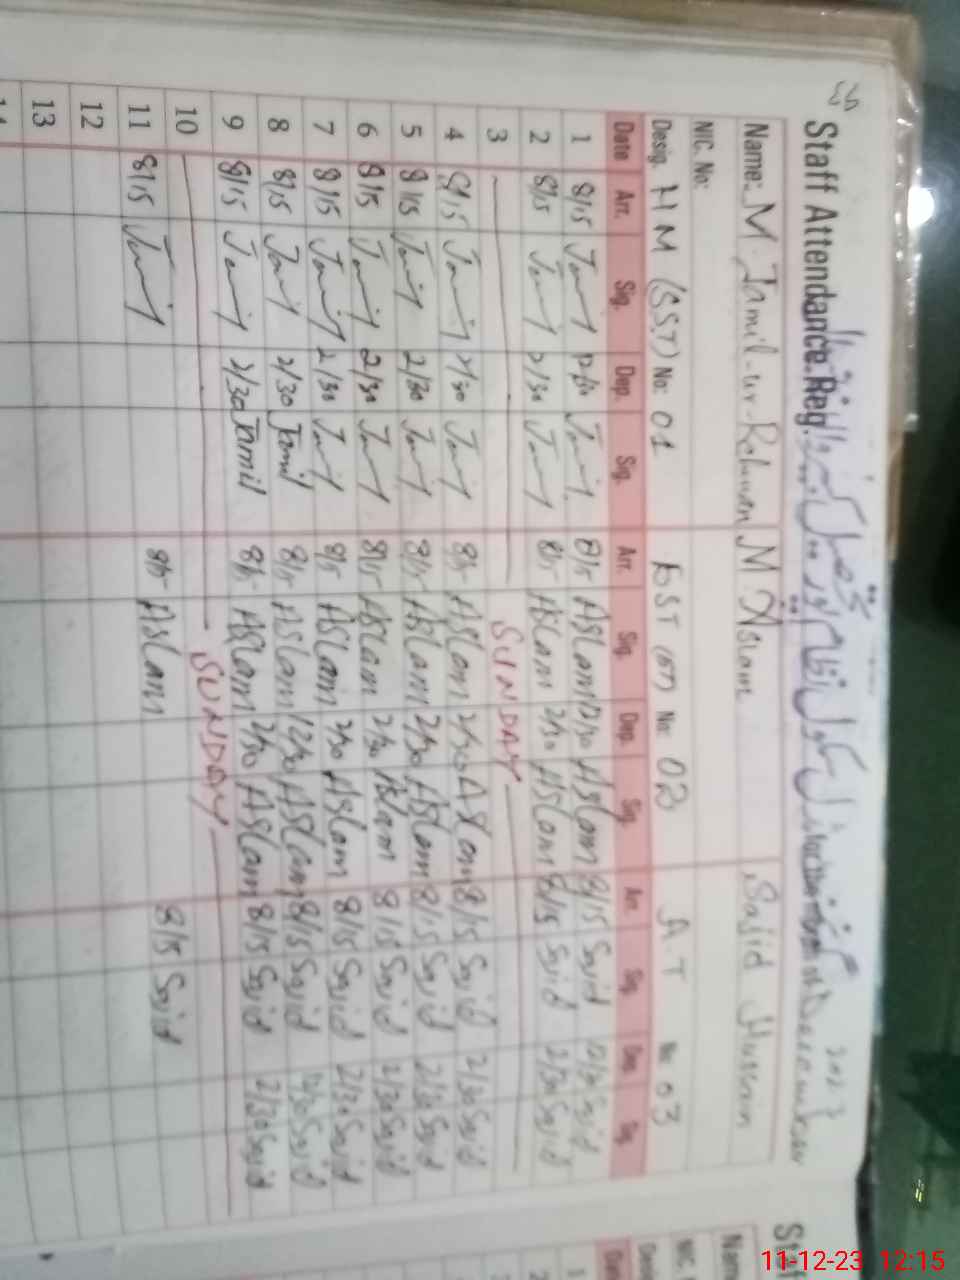 Staff Attendance Reg. December 2023
Name: M. Jamil-ur-Rehman M Aslam Sajid Hussain
NIC. No:
Desig. HM (SST) No: 01 EST No: 02 AT No: 03
Date Arr. Sig. Dep. Sig. Arr. Sig. Dep. Sig. Arr. Sig. Dep. Sig.
1 8/15 Jamil 12/30 Jamil 8/15 Aslam 12/30 Aslam 8/15 Sajid 12/30 Sajid
2 8/15 Jamil 2/30 Jamil 8/15 Aslam 2/30 Aslam 8/15 Sajid 2/30 Sajid
3 SUNDAY
4 8/15 Jamil 2/30 Jamil 8/15 Aslam 2/30 Aslam 8/15 Sajid 2/30 Sajid
5 8/15 Jamil 2/30 Jamil 8/15 Aslam 2/30 Aslam 8/15 Sajid 2/30 Sajid
6 8/15 Jamil 2/30 Jamil 8/15 Aslam 2/30 Aslam 8/15 Sajid 2/30 Sajid
7 8/15 Jamil 2/30 Jamil 8/15 Aslam 2/30 Aslam 8/15 Sajid 2/30 Sajid
8 8/15 Jamil 2/30 Jamil 8/15 Aslam 12/30 Aslam 8/15 Sajid 12/30 Sajid
9 8/15 Jamil 2/30 Jamil 8/15 Aslam 2/30 Aslam 8/15 Sajid 2/30 Sajid
10 SUNDAY
11 8/15 Jamil 8/15 Aslam 8/15 Sajid
12
13
Staff
11-12-23 12:15